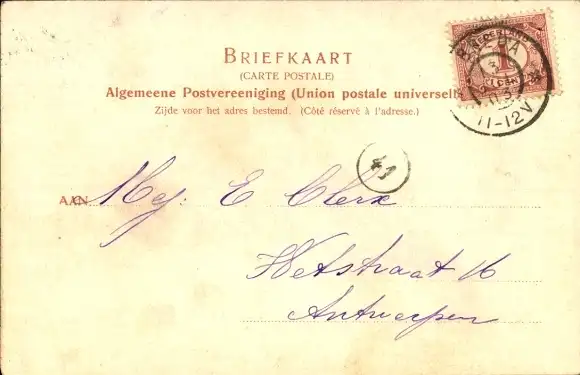 BRIEFKAART
(CARTE POSTALE)
Algemeene Postvereeniging (Union postale universelle
Zijde voor het adres bestemd. (Côté réservé à l'adresse.)
NEDERLAND
1
11-12V
41
AAN Mej: E Clerx
Wetstraat 16
Antwerpen